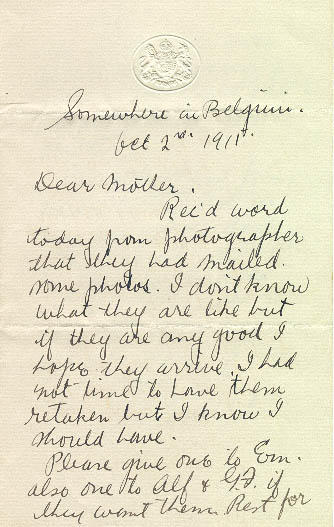 Somewhere in Belgium.
Oct 2nd 191
Dear Mother.
Rec'd word
today from photographer
that they had mailed.
some photos. I don't know
what they are like but
if they are any good I
hope they arrive. I had
not time to have them
retaken but I know I
should have.
Please give one to Em.
also one to Alf & G.F. if
they want them Rest for